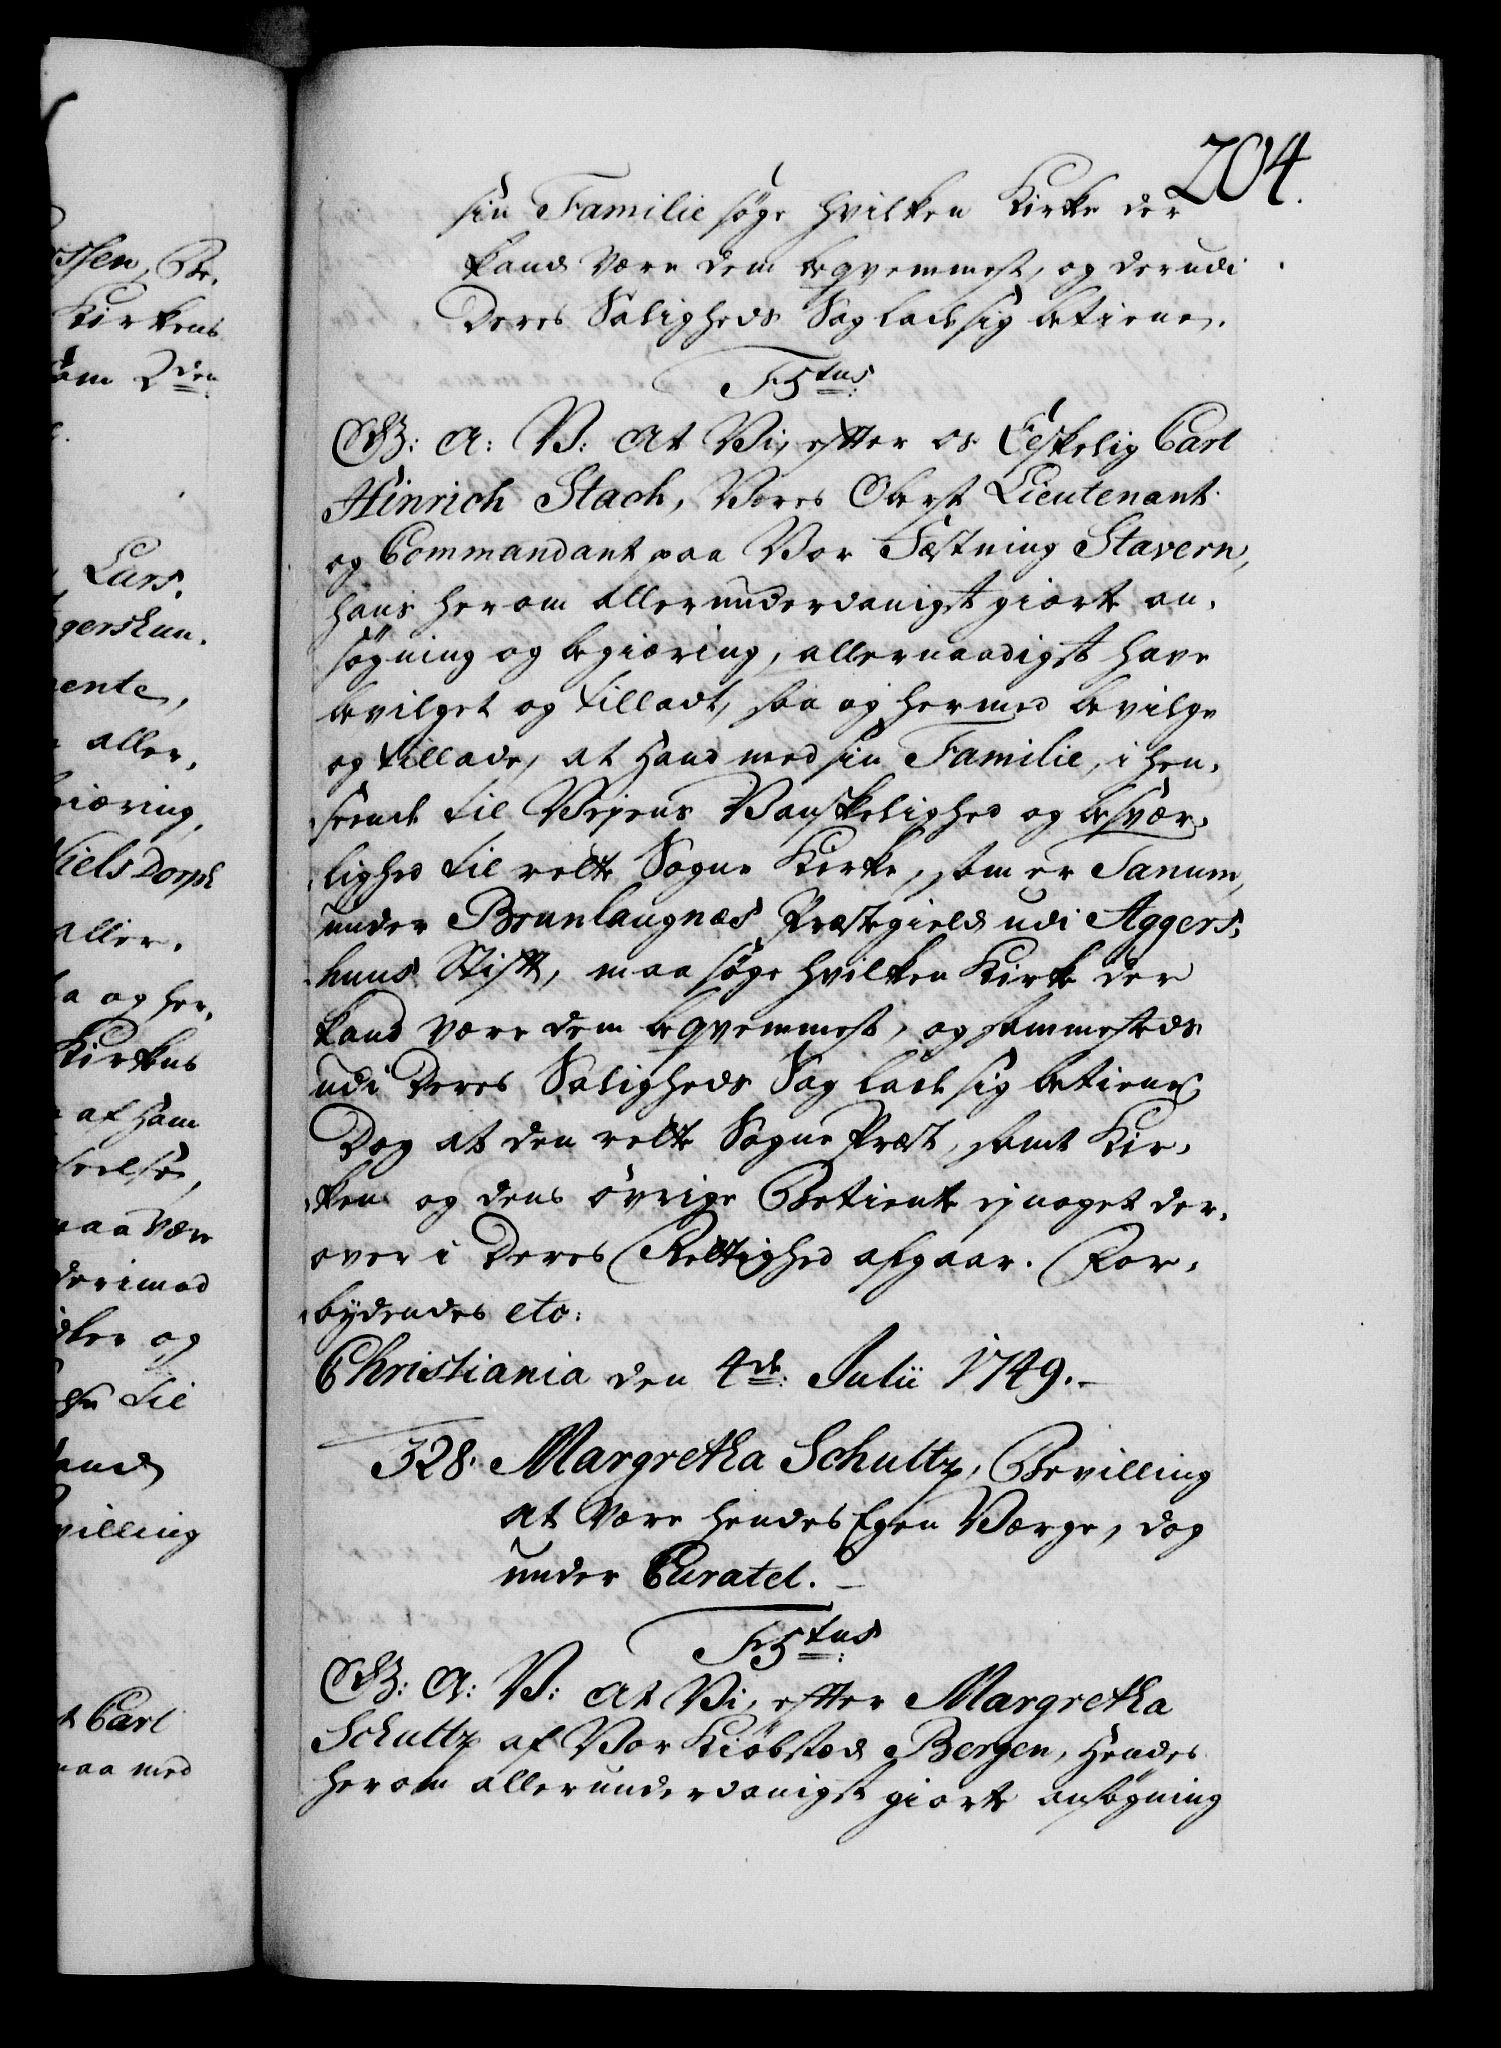 204.
sin Familie søge hvilken Kirke der
kand være dem beqvemmest, og derudi
Deres Saligheds Sag lade sig betiene.
F5tus
G: A: V: At Vi, efter os Elskelig Carl
Hinrich Stach, Vores Oberst Lieutenant
og Commandant paa Vor Fæstning Stavern,
hans herom allerunderdanigst giorte an-
søgning og begiæring, allernaadigst have
bevilget og tilladt, saa og hermed bevilge
og tillade, at Hand med sin Familie, i hen-
seende til Veyens Vanskelighed og besvær-
lighed til rette Sogne Kirke, som er Tanum,
under Brunlaugnæs Præstegield udi Aggers-
huus Stift, maa søge hvilken Kirke der
kand være dem beqvemmest, og sammesteds
udi Deres Saligheds Sag lade sig betiene,
Dog at den rette Sogne Præst, samt Kir-
ken og dens øvrige Betiente ej noget der-
over i Deres Rettighed afgaar. For-
bydendes etc:
Christiania den 4de: Julii 1749.
328. Margretha Schultz, Bevilling
at være hendes Egen Værge, dog
under Curatel.
F5tus
G: A: V: At Vi, efter Margretha
Schultz af Vor Kiøbsted Bergen, Hendes
herom allerunderdanigst giorte ansøgning
ssen, Be-
Kirkens
som 2den
Lars.
gershuu-
ente,
aller-
giæring,
Niels Dorph
aller-
a og her-
Kirkens
af Ham
maa Være
derimod
og
til
villing
Carl
maa med